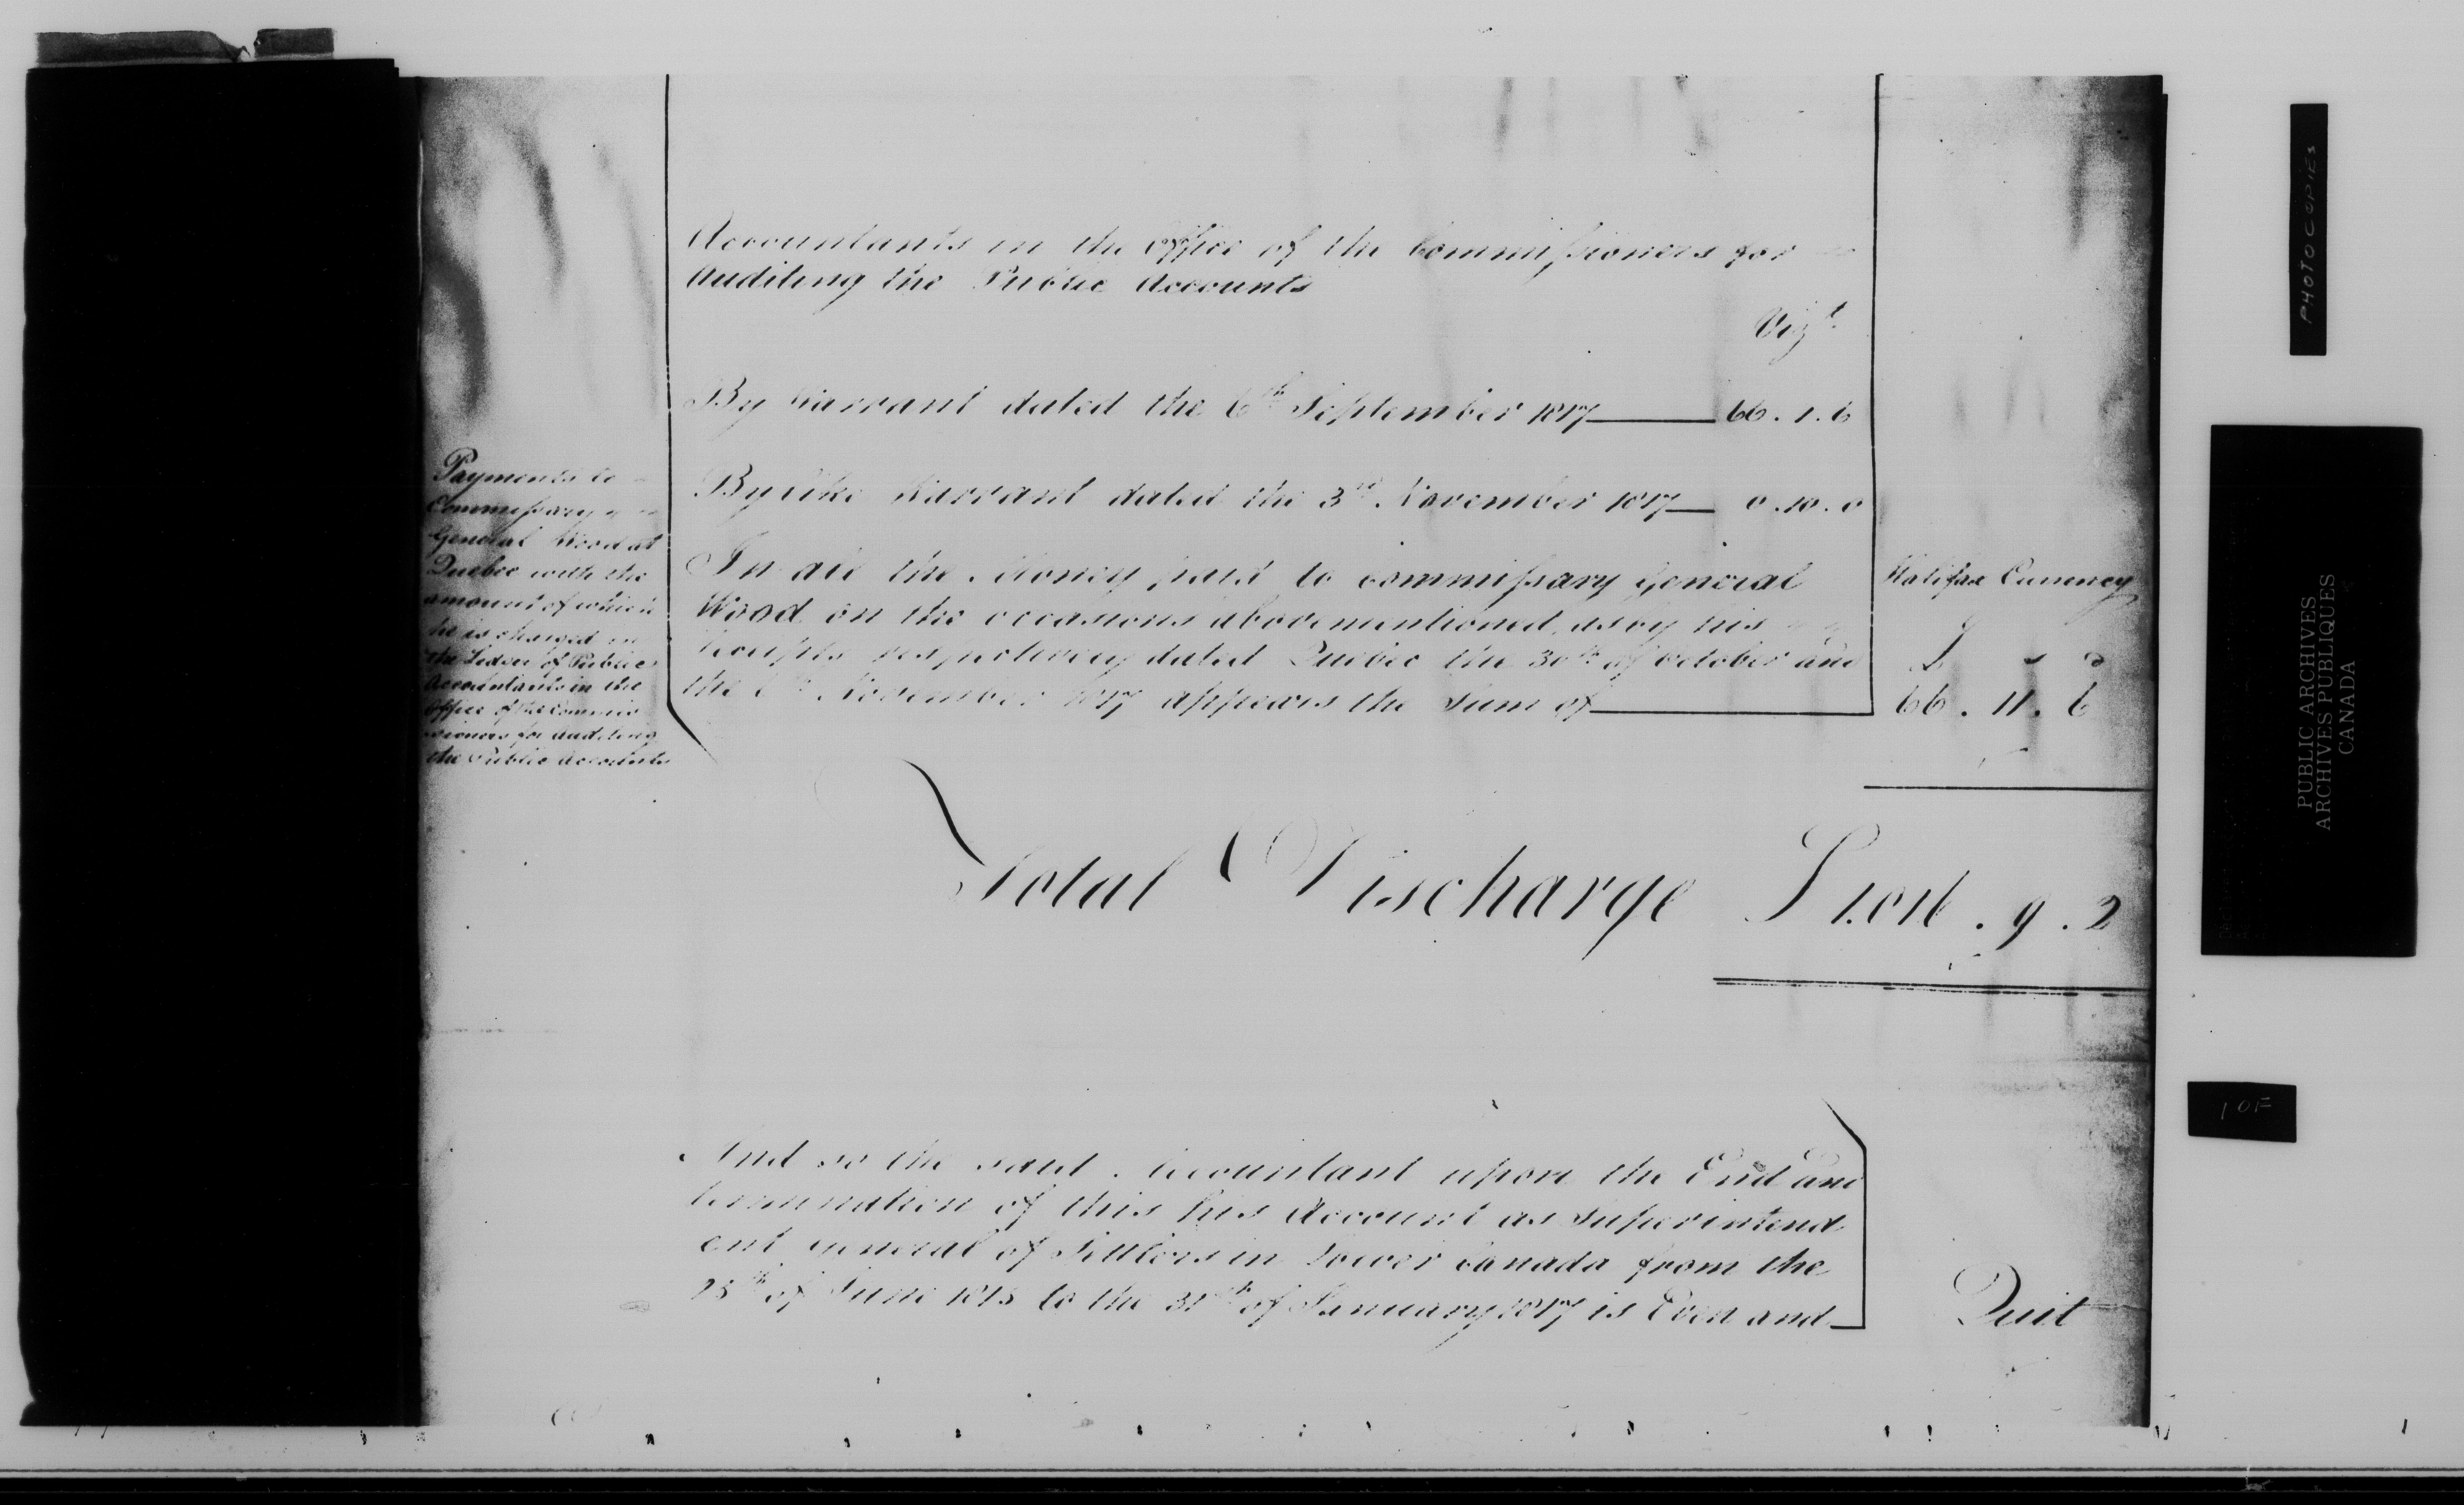 Accountants in the Office of the Commissioners for
Auditing the Public Accounts
Vizt.
By Warrant dated the 6th September 1817 66.1.6
By like Warrant dated the 3rd November 1817 0.10.0
Payments to
Commissary
General Wood at
Quebec with the
amount of which
he is charged in
the Ledger of Public
Accountants in the
Office of the Commis
sioners for Auditing
the Public Accounts
In all the Money paid to Commissary General
Wood on the occasions abovementioned, as by his
Receipts respectively dated Quebec the 30th of October and
the November 1817 appears the Sum of
Halifax Currency
£ s d
66.11.6
Total Discharge £ . 9 . 2
And so the said Accountant upon the End and
termination of this his Account as Superintend
ent General of Settlers in Lower Canada from the
25th of June 1815 to the 31st of January 1817 is Even and
Quit
PHOTOCOPIES
PUBLIC ARCHIVES
ARCHIVES PUBLIQUES
CANADA
1 OF